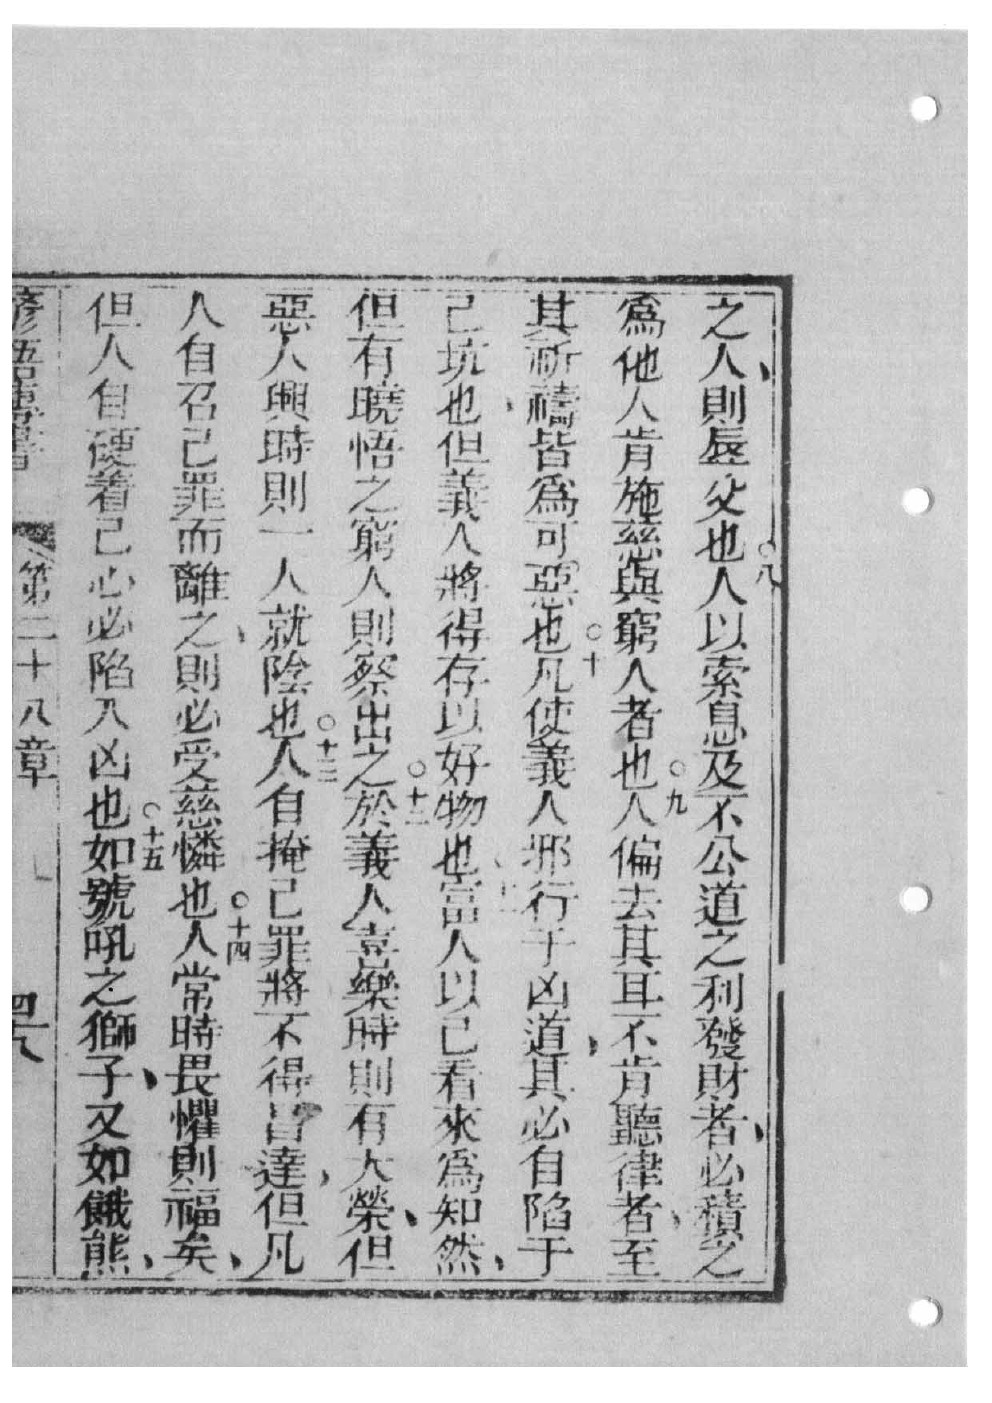 之人、則辱父也○八人以索息及不公道之利發財者、必積之
爲他人肯施慈與窮人者也○九人偏去其耳不肯聽律者、至
其祈禱、皆爲可惡也○十凡使義人邪行于凶道、其必自陷于
己坑也、但義人將得存以好物也○十一富人以己看來爲知然、
但有曉悟之窮人則察出之○十二於義人喜樂時則有大榮、但
惡人興時則一人就陰也○十三人自掩己罪將不得昌達、但凡
人自召己罪而離之、則必受慈憐也○十四人常時畏懼則福矣、
但人自硬着己心必陷入凶也○十五如號吼之獅子、又如餓熊、
諺語傳書 第二十八章 四十八